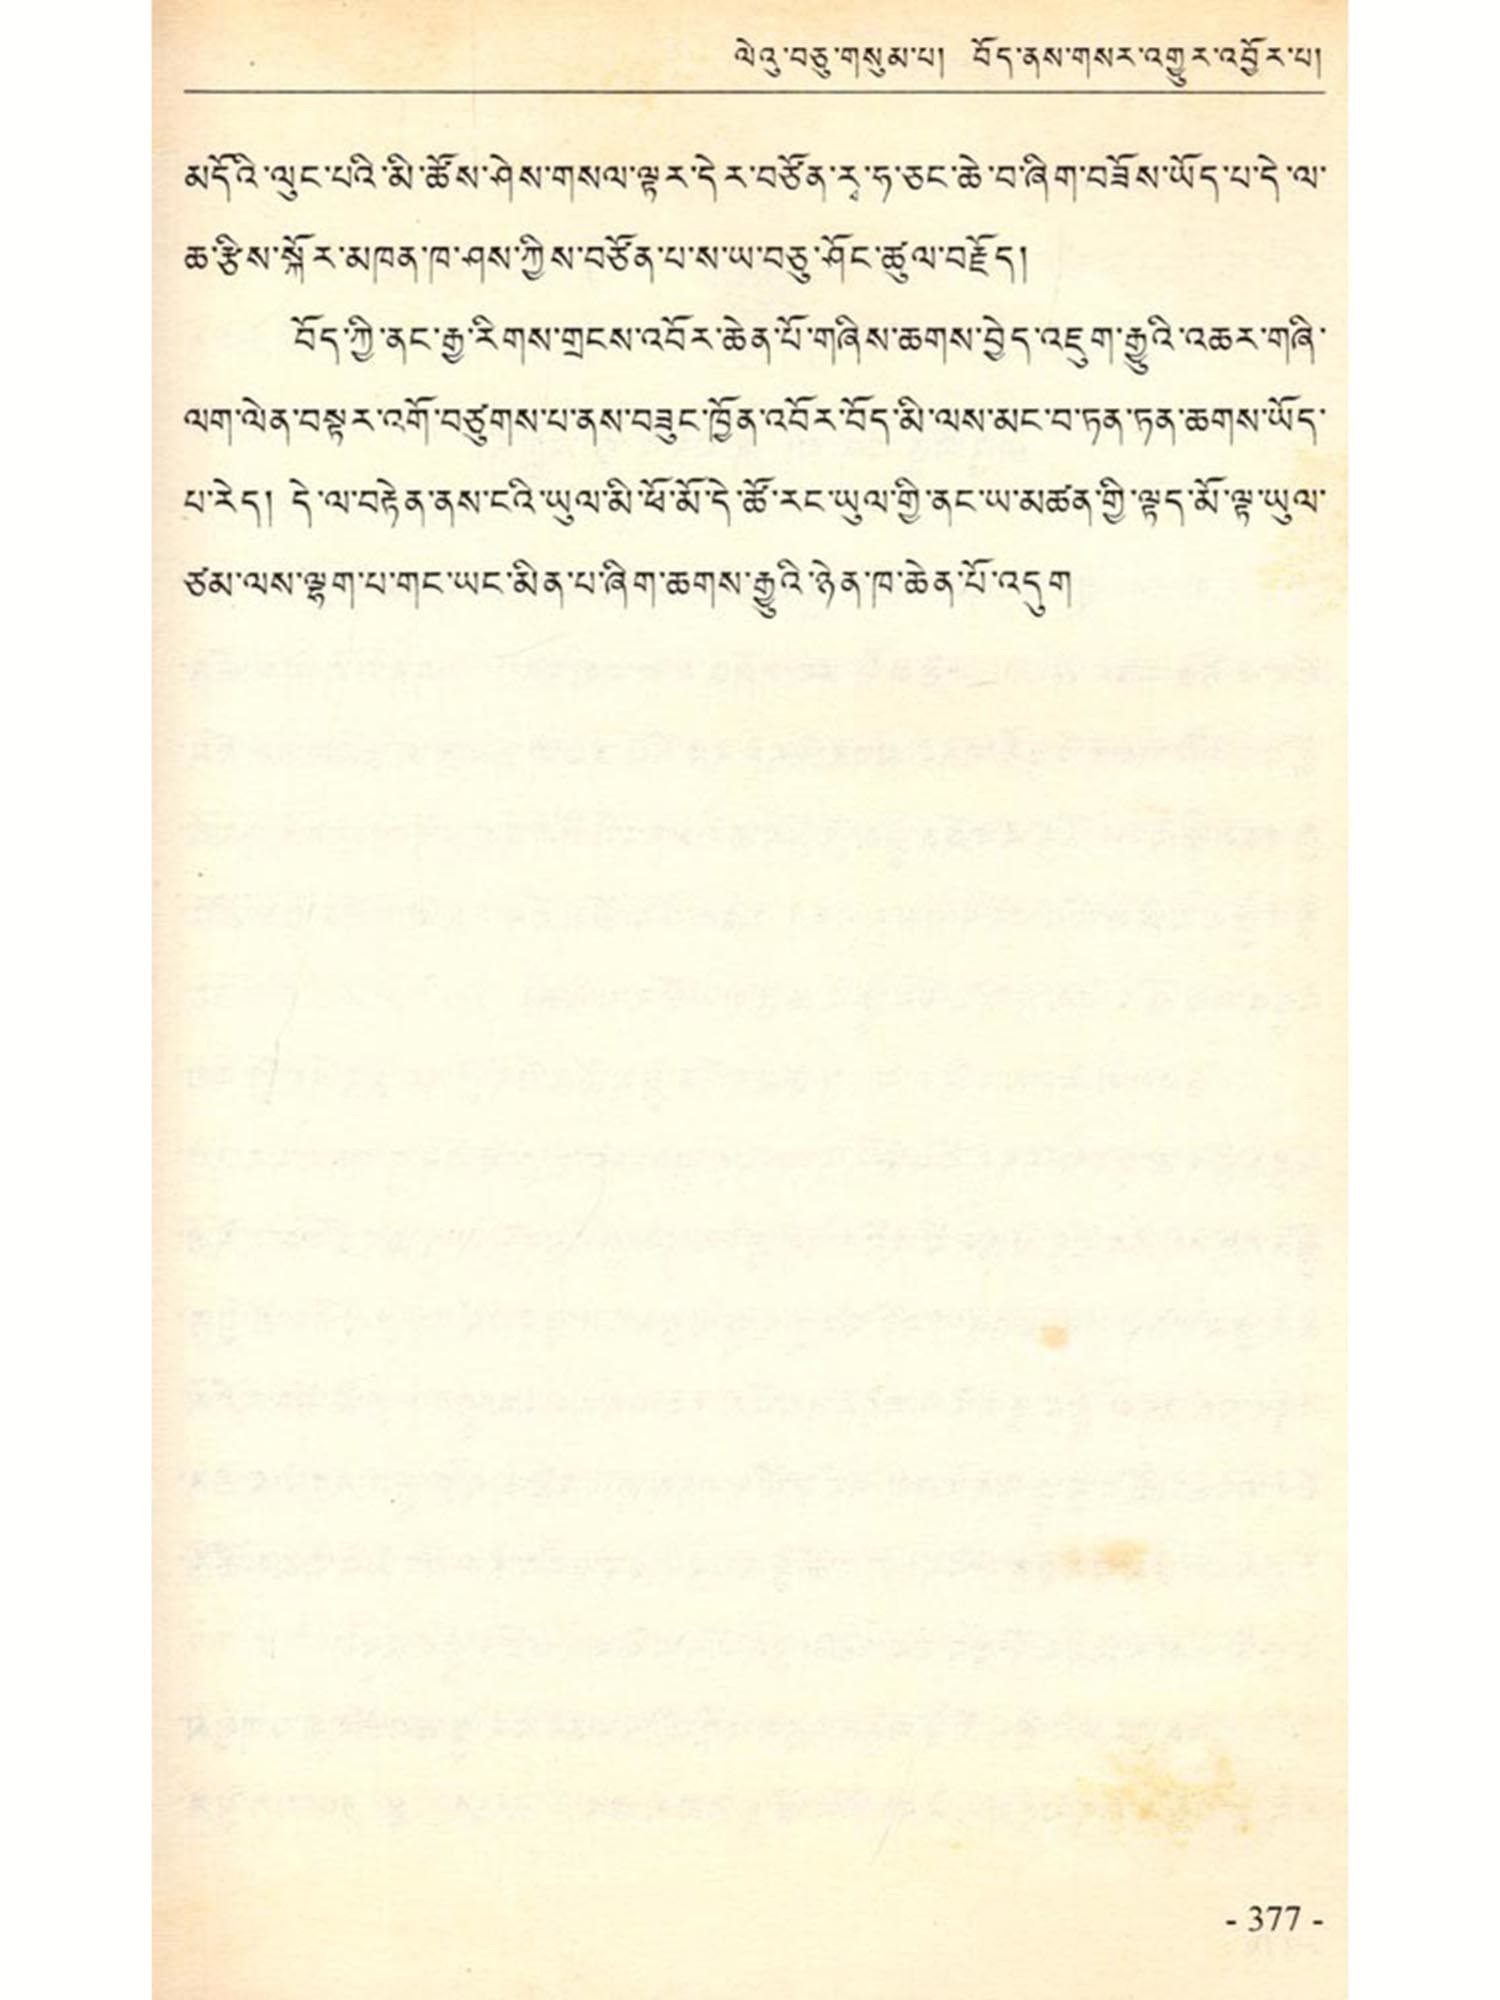 ལེའུ་བཅུ་གསུམ་པ། བོད་ནས་གསར་འགྱུར་འབྱོར་པ།
མདོའི་ལུང་པའི་མི་ཚོས་ཤེས་གསལ་ལྟར་དེར་བཙོན་རྭ་ཧ་ཅང་ཆེ་བ་ཞིག་བཟོས་ཡོད་པ་དེ་ལ་
ཆ་རྩིས་སྐོར་མཁན་ཁ་ཤས་ཀྱིས་བཙོན་པ་ས་ཡ་བཅུ་ཤོང་ཚུལ་བརྗོད།
བོད་ཀྱི་ནང་རྒྱ་རིགས་གྲངས་འབོར་ཆེན་པོ་གཞིས་ཆགས་བྱེད་འཇུག་རྒྱུའི་འཆར་གཞི་
ལག་ལེན་བསྟར་འགོ་བཙུགས་པ་ནས་བཟུང་ཁྱོན་འབོར་བོད་མི་ལས་མང་བ་ཏན་ཏན་ཆགས་ཡོད་
པ་རེད། དེ་ལ་བརྟེན་ནས་ངའི་ཡུལ་མི་ཕོ་མོ་དེ་ཚོ་རང་ཡུལ་གྱི་ནང་ཡ་མཚན་གྱི་ལྟད་མོ་ལྟ་ཡུལ་
ཙམ་ལས་ལྷག་པ་གང་ཡང་མིན་པ་ཞིག་ཆགས་རྒྱུའི་ཉེན་ཁ་ཆེན་པོ་འདུག
- 377 -